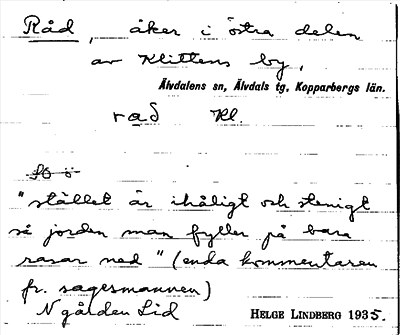 Råd, åker i östra delen
av Klittens by,
Älvdalens sn, Älvdals tg, Kopparbergs län.
rad Kl.
"stället är ihåligt och stenigt
så jorden man fyller på bara
rasar ned" (enda kommentaren
fr. sagesmannen)
N gården Lid
HELGE LINDBERG 1935.